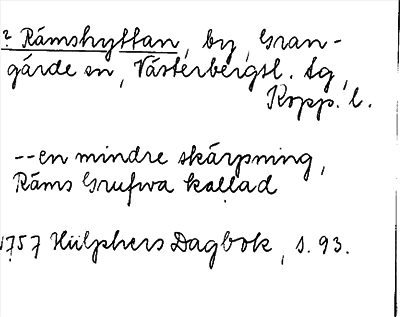 ? Rämshyttan, by, Gran-
gärde sn, Västerbergsl. tg,
Kopp. l.
--en mindre skärpning,
Räms Grufwa kallad
1757 Hülphers Dagbok, s. 93.